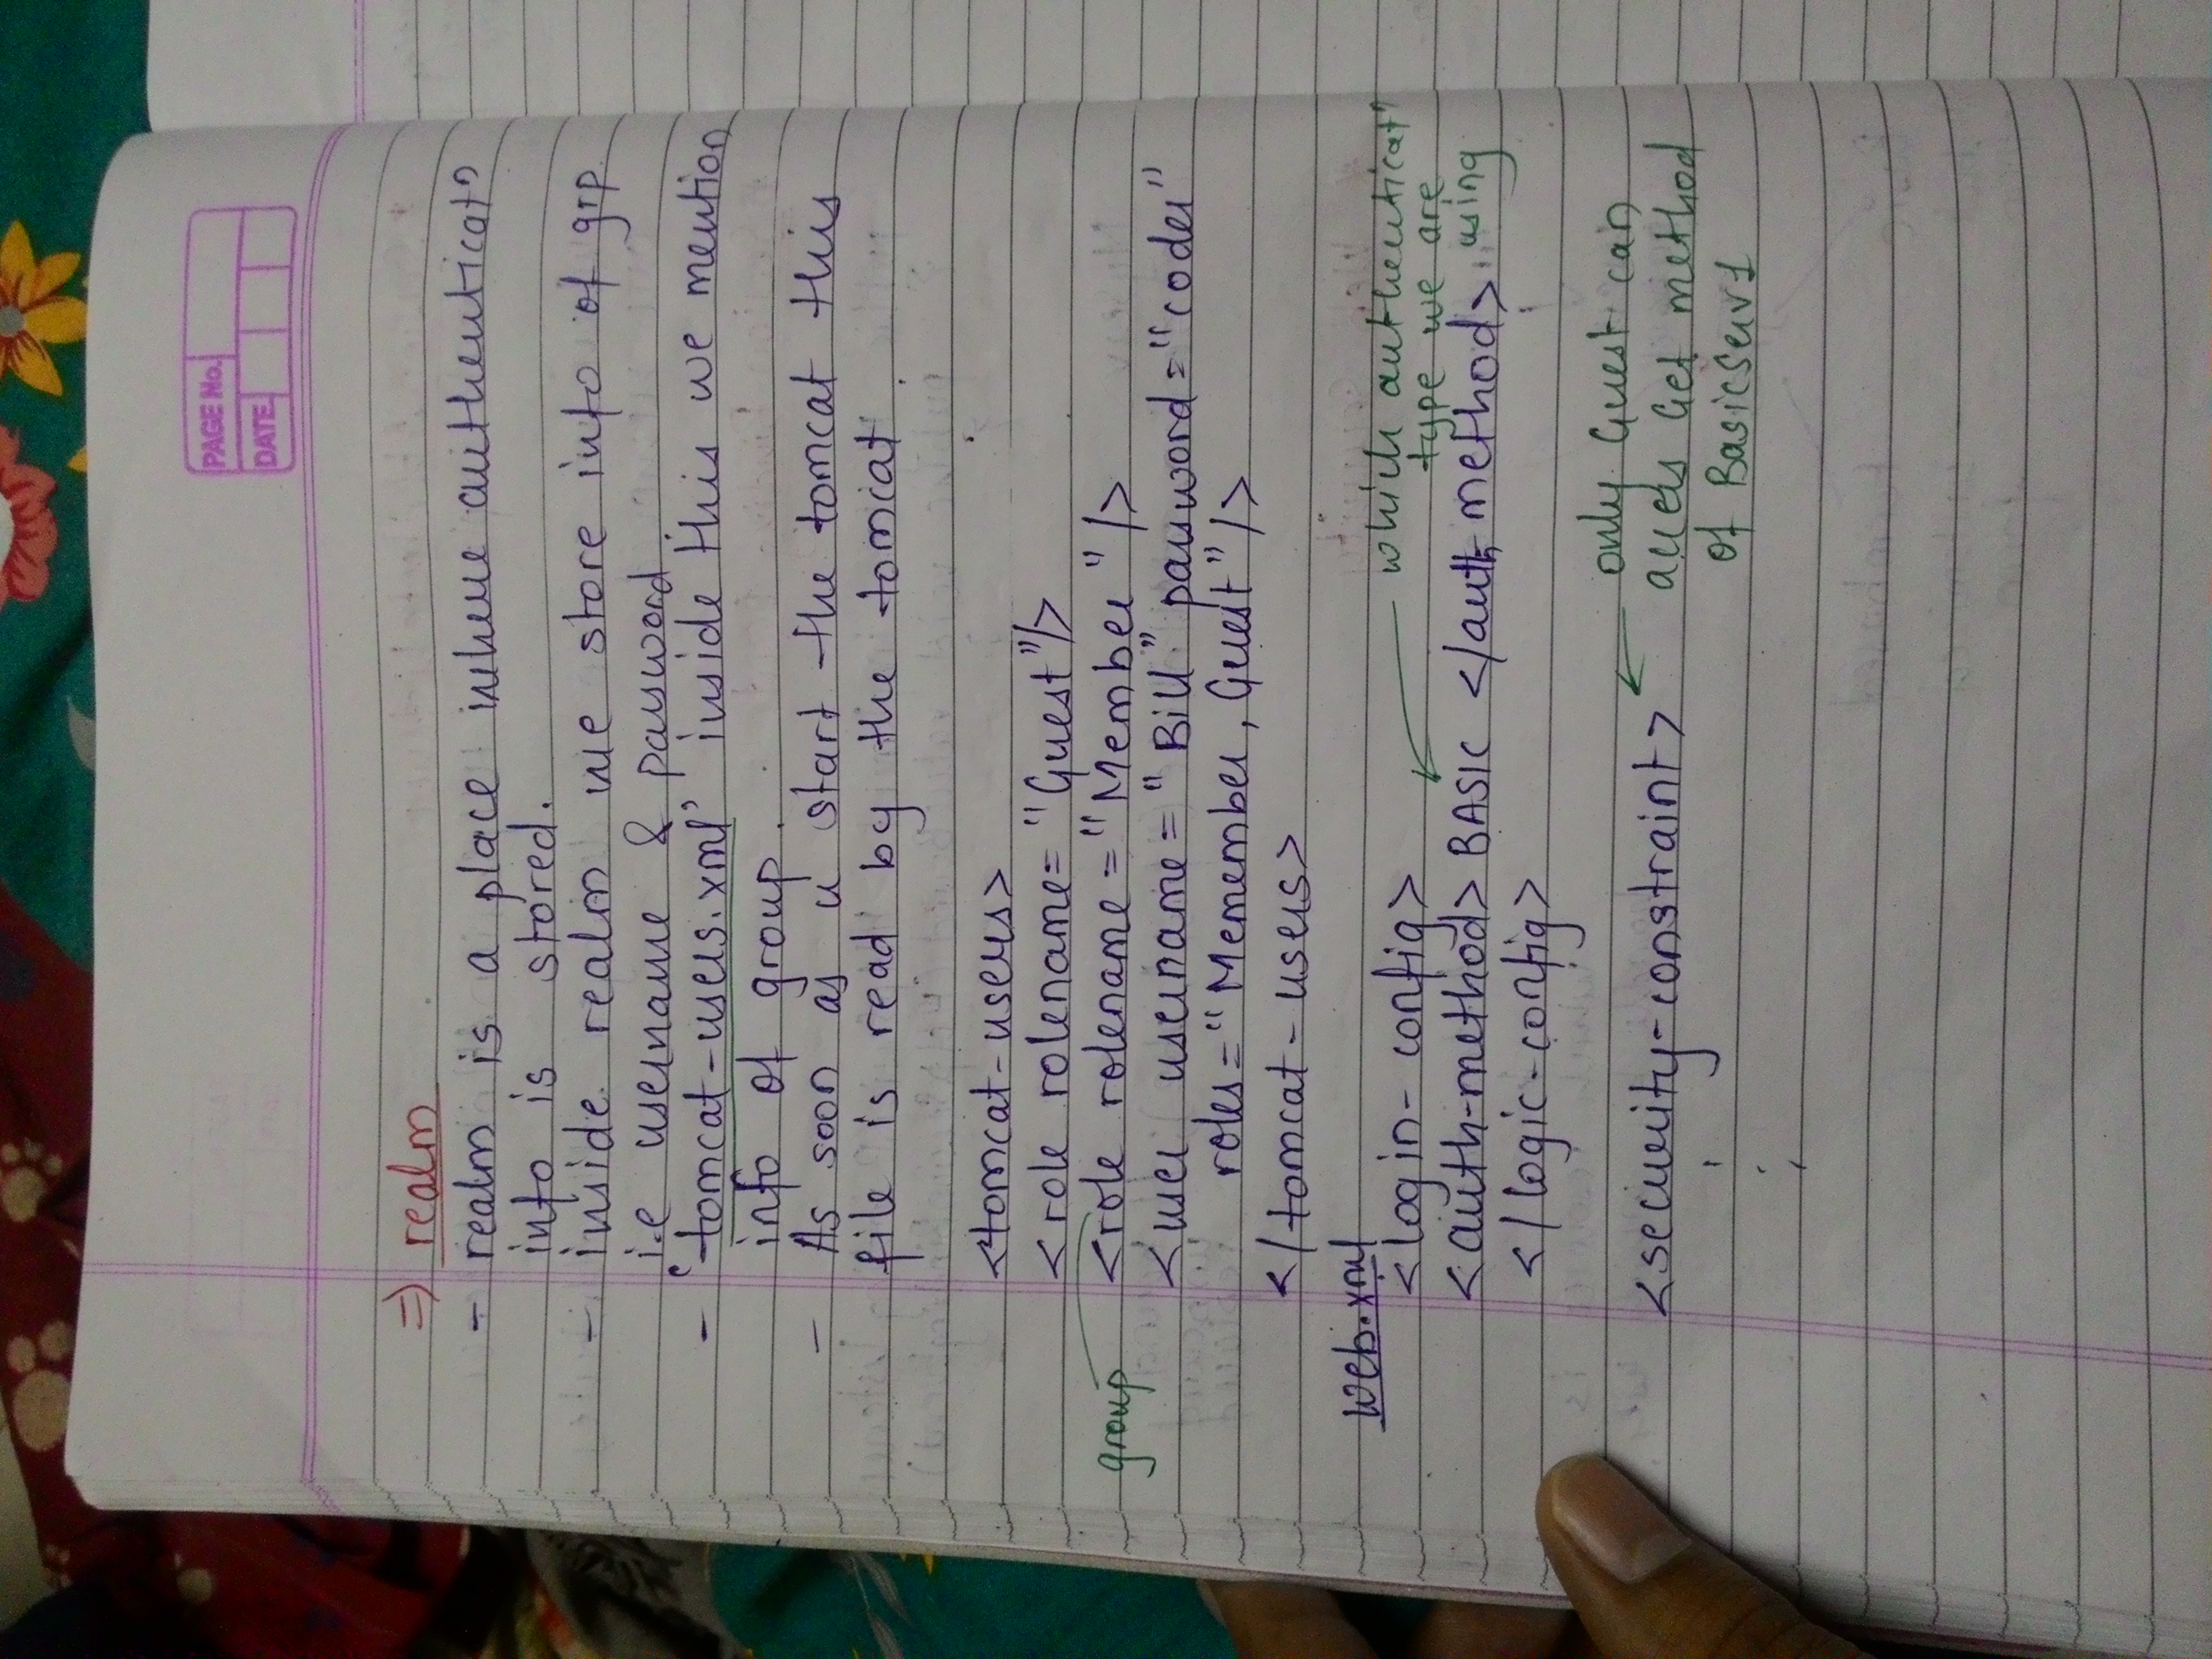 PAGE No.
DATE
=> realm
- realm is a place where authenticatn
info is stored.
- inside realm we store info of grp
i.e username & password.
- 'tomcat-users.xml' inside this we mention
info of group.
- As soon as u start the tomcat this
file is read by the tomcat.
<tomcat-users>
<role rolename="Guest"/>
group <role rolename="Member"/>
<user username="Bill" password="coder"
roles="Memember, Guest"/>
</tomcat-users>
web.xml
<login-config>
which authenticatn
type we are
using
<auth-method> BASIC </auth-method>
</logic-config>
only Guest can
access Get method
of BasicServ1
<security-constraint>